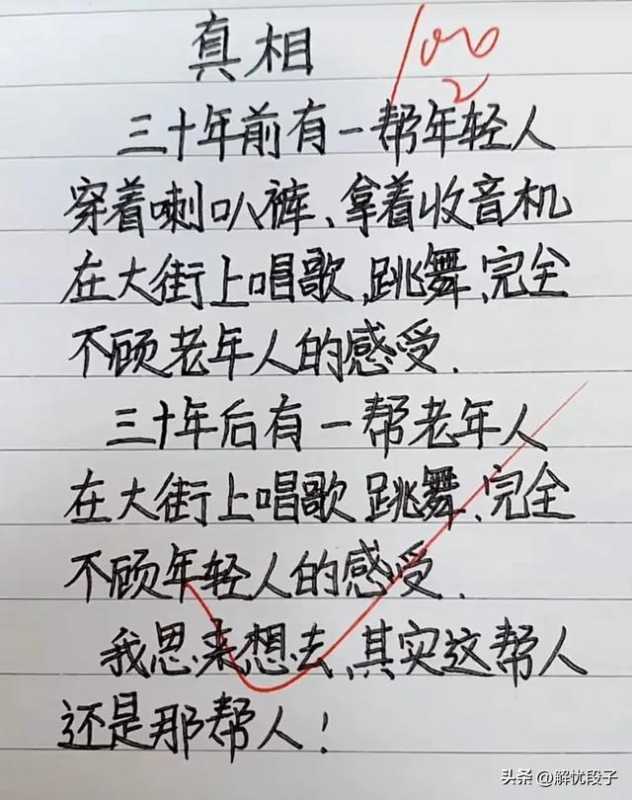 真相
100
2
三十年前有一帮年轻人
穿着喇叭裤、拿着收音机
在大街上唱歌,跳舞,完全
不顾老年人的感受.
三十年后有一帮老年人
在大街上唱歌 跳舞、完全
不顾年轻人的感受.
我思来想去,其实这帮人
还是那帮人!
头条 @解忧段子